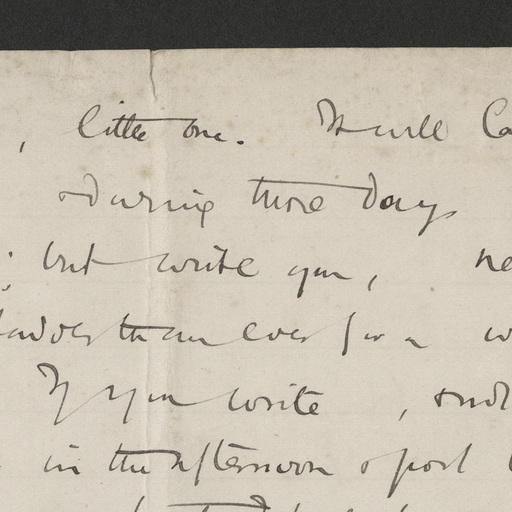 , little one. It will
during those days
; but write you,
than ever for a
If you write , and
in the afternoon & post